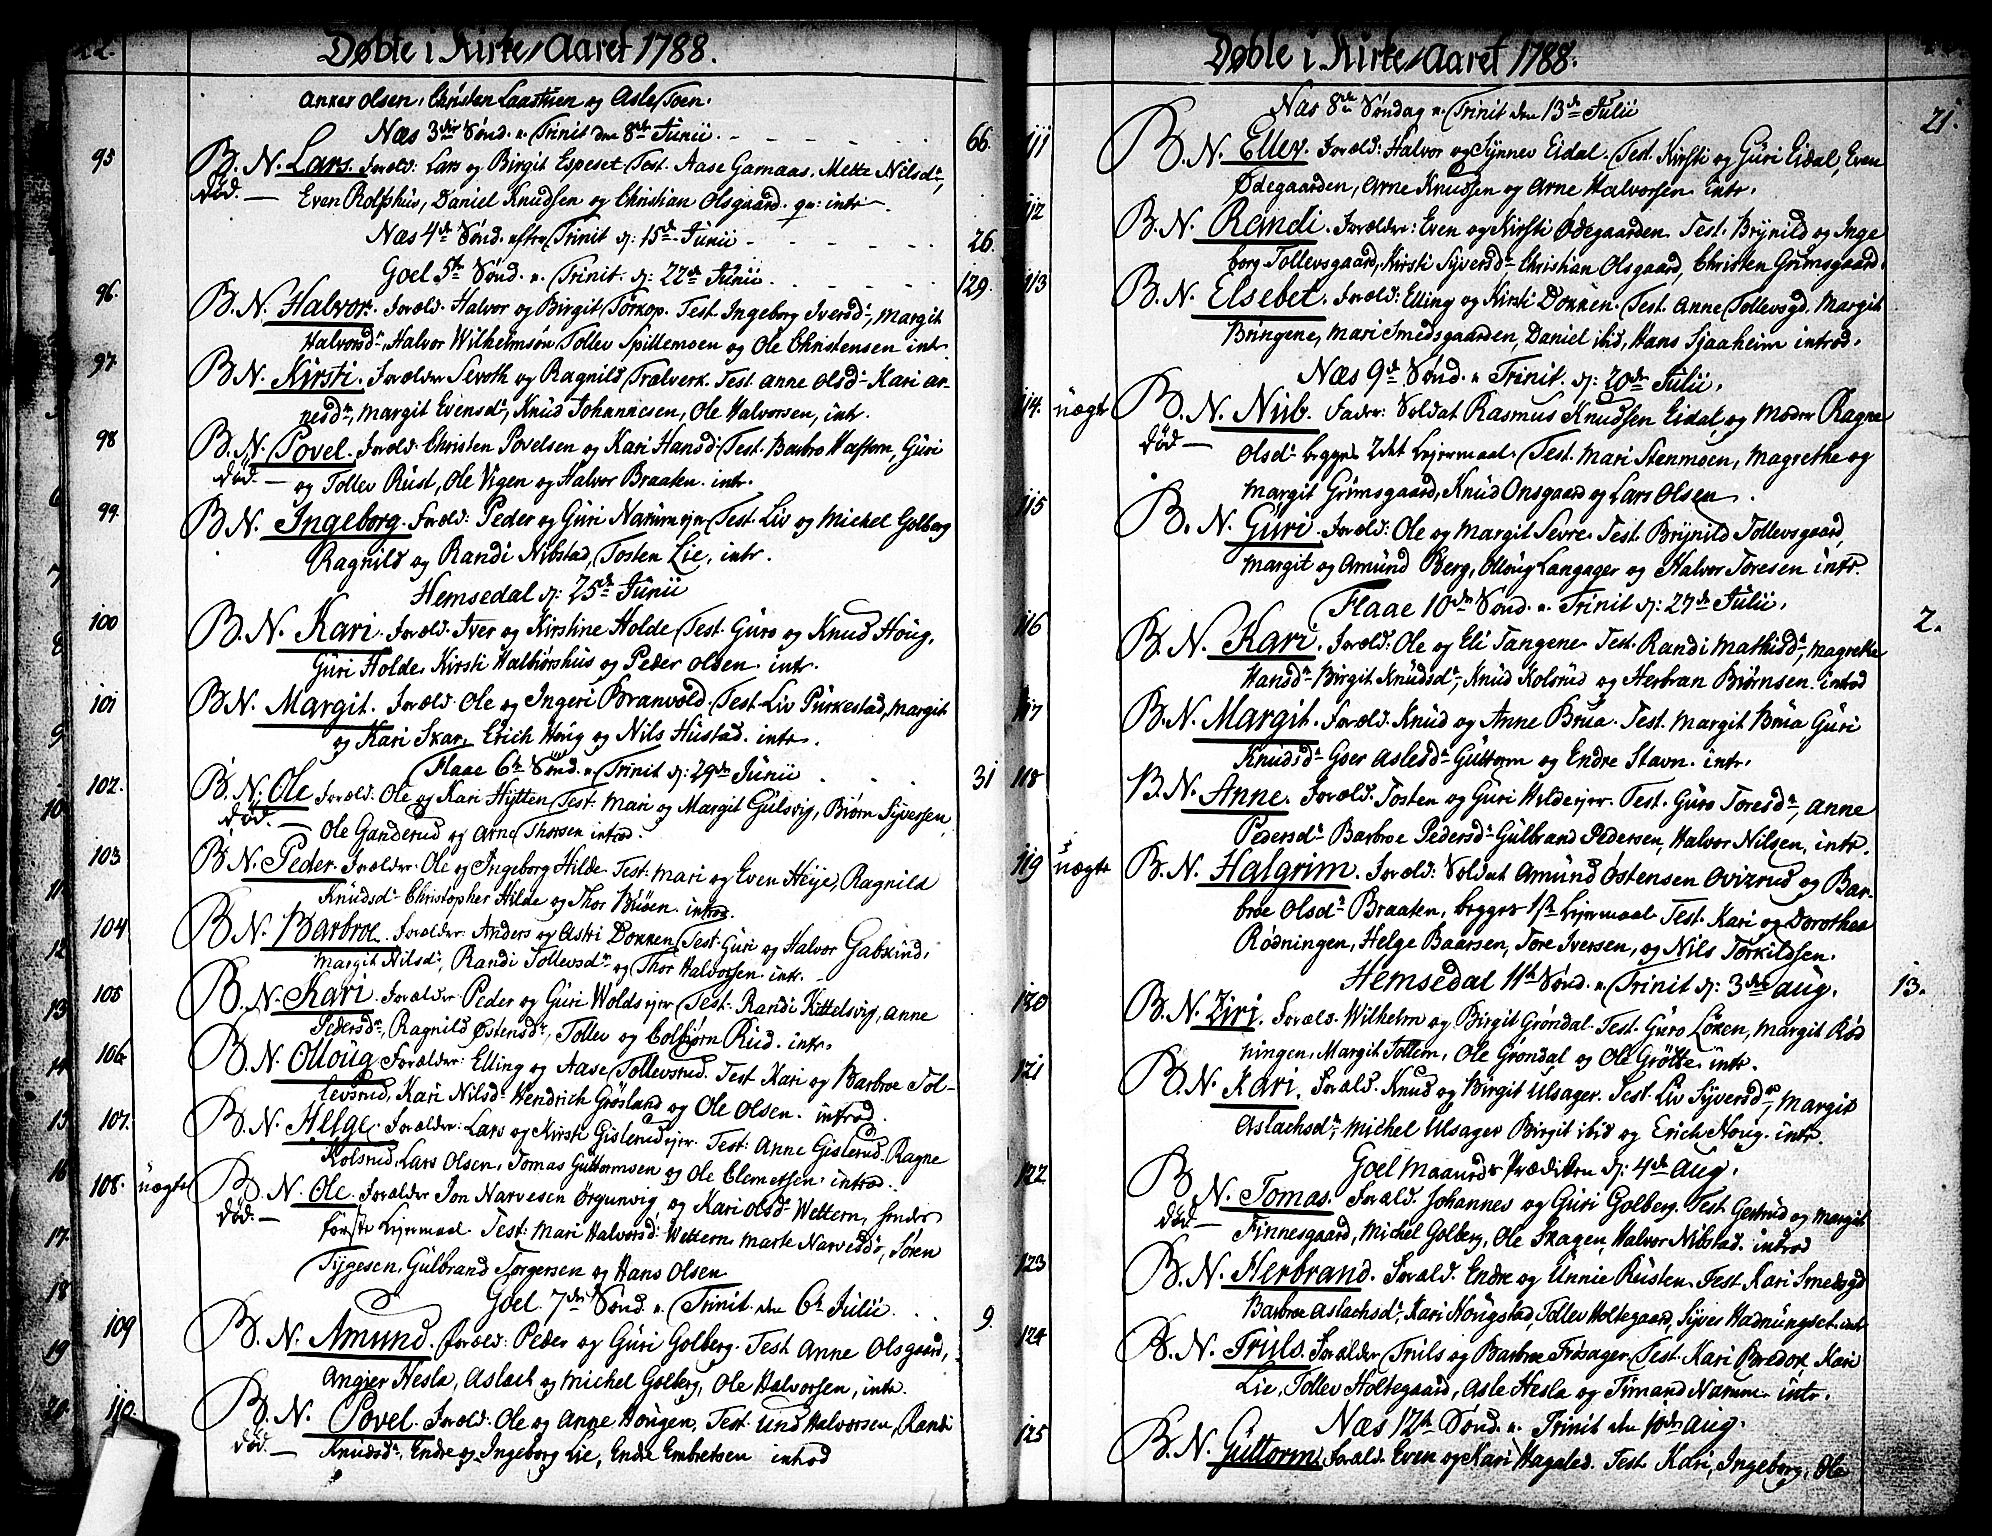 22.
Døbte i Kirke Aaret 1788.
Anker Olsen, Christen Laastuen og Asle Toen.
Næs 3die Sønd. a. Trinit den 8de Junii. 66.
95 B. N. Lars. Foræld: Lars og Birgit Espeset Test. Aase Garnaas, Mette Nilsd.,
død. Even Rolfshus, Daniel Knudsen og Christian Olsgaard. qv: intr.
Næs 4de Sønd. efter Trinit d: 15de Junii 26.
Goel 5te Sønd. a. Trinit. d: 22de Junii. 129.
96. B. N. Halvor. Foræld. Halvor og Birgit Torkop. Test Ingeborg Iversd., Margit
Halvorsd., Halvor Wilhelmsøn Tollev Spillemoen og Ole Christensen int.
97. B N. Kirsti. Forælder Sevoth og Ragnild Tralverk. Test. Anne Olsd. Kari Ar-
nesd., Margit Evensd., Knud Johannesen, Ole Halvorsen, intr.
98 B. N. Povel. Foræld. Christen Povelsen og Kari Hansd. Test. Barbro Haftorn, Guri
død. og Tollev Rust, Ole Vigen og Halvor Braaten. intr.
99. B N. Ingeborg. Foræld: Peder og Guri Narumejer Test. Liv og Michel Golberg
Ragnild og Randi Nibstad, Tosten Lie, intr.
Hemsedal d: 25de Junii
100 B. N. Kari. Foræld. Iver og Kirstine Holde Test. Guro og Knud Houg,
Guri Holde, Kirsti Halbiørshus og Peder Olsen. intr.
101 B N. Margit. Foræld Ole og Ingeri Branvold. Test Liv Purkestad, Margit
og Kari Skar, Erich Houg og Nils Hustad. intr.
Flaae 6te Sønd. a. Trinit d: 29de Junii 31
102. B. N. Ole Foræld. Ole og Kari Hytten Test. Mari og Margit Gulsvig, Biørn Syversen
død. Ole Ganderud og Arne Thorsen introd.
103 B N. Peder. Forælder Ole og Ingeborg Hilde Test. Mari og Even Heije, Ragnild
Knudsd. Christopher Hilde og Thor Buøen. introd.
104 B N. Barbroe. Forælder: Anders og Astri Dokken Test. Guri og Halvor Gabkind,
Margit Nilsd., Randi Tollevsd. og Thor Halvorsen. intr.
105 B. N. Kari. Forælder Peder og Guri Woldsejer Test. Randi Kittelsvig, Anne
Pedersd., Ragnild Østensd., Tollev og Colbiørn Rud. intr.
106. B. N. Olloug Forælder. Elling og Aase Tollevsrud. Test Kari og Barbroe Tol-
levsrud, Kari Nilsd. Hendrich Grøsland og Ole Olsen. introd.
107. B. N. Helge. Forælder: Lars og Kirsti Gislerudejer. Test: Anne Gislerud Ragne
Kolsrud, Lars Olsen, Tomas Guttormsen og Ole Clemetsen. introd.
108. uægte B. N. Ole. Forælder Jon Narvesen Ørgunvig og Kari Olsd. Wettern,
død. første Lejermaal. Test. Mari Halvorsd. Wettern, Marte Narvesd., Søren
Tygesen, Gulbrand Torgersen og Hans Olsen
Goel. 7de Sønd. a. Trinit. den 6te Julii. 9.
109 B. N. Amund. Foræld: Peder og Guri Golberg. Test Anne Olsgaard,
Angier Hesla, Aslach og Michel Golberg, Ole Halvorsen, intr.
110. B. N. Povel. Foræld: Ole og Anne Hougen, Test. Und Halvorsen, Randi
død. Knudsd., Endre og Ingeborg Lie, Endre Embretsen introd
Døbte i Kirke Aaret 1788.
Næs 8de Søndag a. Trinit den 13de Julii 21.
111 B. N. Ellev. Foræld: Halvor og Synnev Eidal. Test. Kirsti og Guri Eidal, Even
Ødegaarden, Arne Knudsen og Arne Halvorsen intr.
112 B. N. Randi. Forælder: Even og Kirsti Ødegaarden Test. Brynild og Inge
borg Tollevsgaard, Kirsti Syversd. Christian Olsgaard, Christen Grimsgaard.
113 B. N. Elsebet. Foræld: Elling og Kirsti Dokken. Test. Anne Tollevsgd. Margit
Bringene, Mari Smedsgaarden, Daniel ibid, Hans Sjaaheim introd.
Næs 9de Sønd. a Trinit. d: 20de Julii.
114. uægte B. N. Nub. Fader: Soldat Rasmus Knudsen Eidal og Moder Ragne
død Olsd. begges 2det Lejermaal. Test. Mari Stenmoen, Magrethe og
Margit Grimsgaard, Knud Onsgaard og Lars Olsen.
115 B. N. Guri. Foræld: Ole og Margit Sevre. Test. Brynild Tollevsgaard,
Margit og Amund Berg, Olloug Langager og Halvor Toresen intr.
Flaae 10de Sønd. a. Trinit d: 27de Julii. 2.
116 B. N. Kari. Foræld: Ole og Eli Tangene Test. Randi Mathisd., Magrethe
Hansd. Birgit Knudsd., Knud Kolsrud og Herbran Biørnsen. introd
117 B. N. Margit. Foræld. Knud og Anne Brua. Test. Margit Brua Guri
Knudsd. Goer Aslesd. Guttorm og Endre Stavn. intr.
118 B. N. Anne. Foræld. Tosten og Guri Hildeejer. Test. Guro Toresd., Anne
Pedersd. Barbroe Pedersd. Gulbrand Pedersen, Halvor Nilsen, intr.
119 uægte B. N. Halgrim. Foræld: Soldat Amund Østensen Ovizrud og Bar-
broe Olsd. Braaten, begges 1ste Lejermaal Test. Kari og Dorothea
Rødningen, Helge Baarsen, Tore Iversen, og Nils Torkildsen.
Hemsedal 11te Sønd. a. Trinit d: 3die Aug. 13.
120 B. N. Ziri. Foræld. Wilhelm og Birgit Grøndal. Test. Guro Løken, Margit Rød
ningen, Margit Tollem, Ole Grøndal og Ole Grøtte. intr.
121 B. N. Kari. Foræld. Knud og Birgit Ulsager. Test. Liv Syversd., Margit
Aslachsd., Michel Ulsager Birgit ibid og Erich Houg. intr.
Goel Maaneds Prædiken d: 4de Aug.
122 B. N. Tomas. Foræld. Johannes og Guri Golberg. Test Gertrud og Margit
død. Finnesgaard, Michel Golberg, Ole Skagen, Halvor Nibstad. introd
123 B. N. Herbrand. Foræld. Endre og Unnie Rusten. Test. Kari Smedsgd
Barbroe Aslachsd., Kari Hougstad, Tollev Holtegaard, Syver Hadnungset. int
124 B. N. Truls. Forælder Truls og Barbroe Frøsager. Test. Kari Bredok, Kari
Lie, Tollev Holtegaard, Asle Hesla og Timand Narum. intr.
Næs 12te Sønd. a. Trinit den 10de Aug.
125 B. N. Guttorm. Foræld. Even og Kari Hagaled. Test. Kari, Ingeborg, Ole